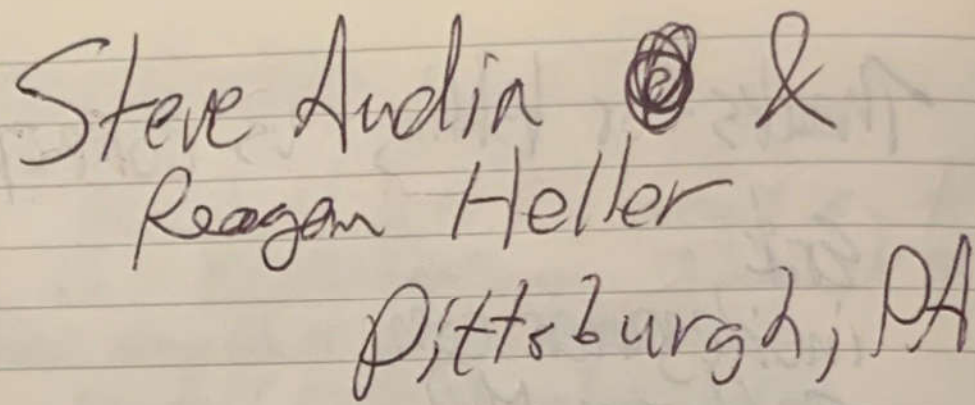 Steve Audin &
Reagan Heller
Pittsburgh, PA